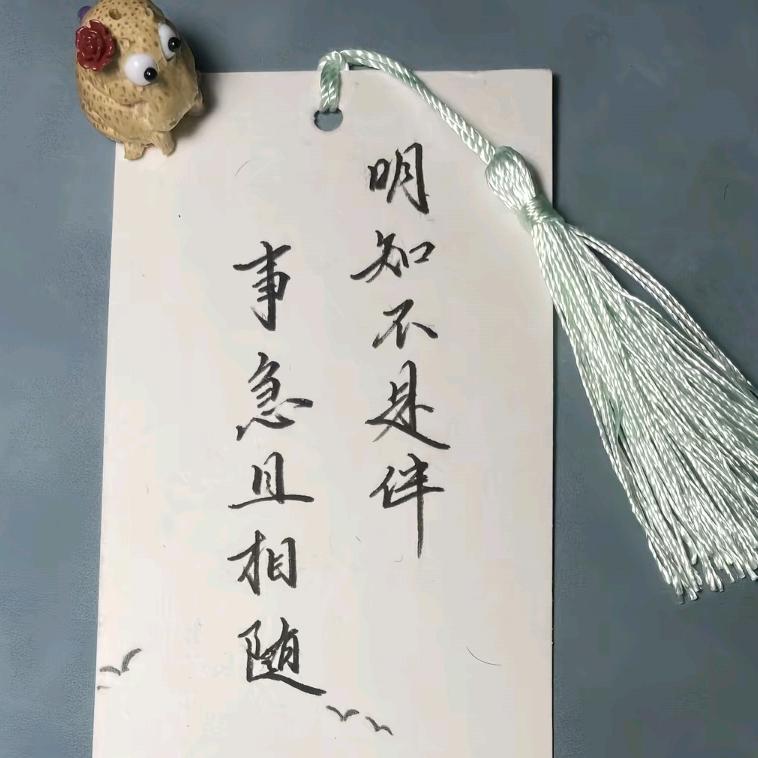 明知不是伴
事急且相随